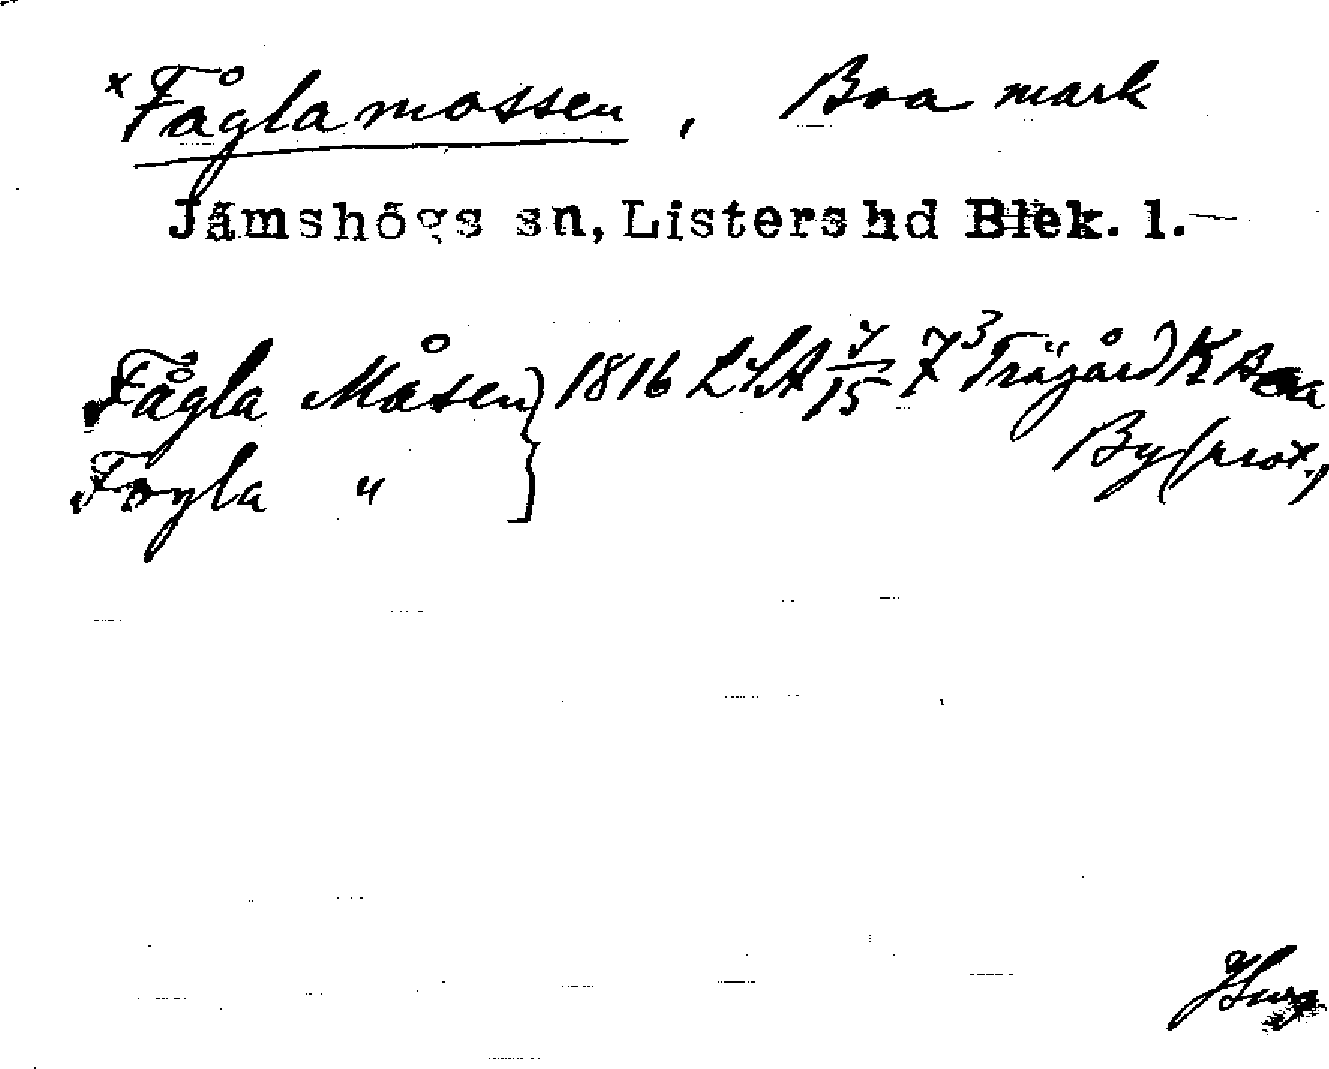 x Fåglamossen, Boa mark
Jämshögs sn, Listers hd Blek. l.
Fågla Måsen } 1816 LSA 7/15 7³ Trägård K Boa
Foygla " } By (prot.)